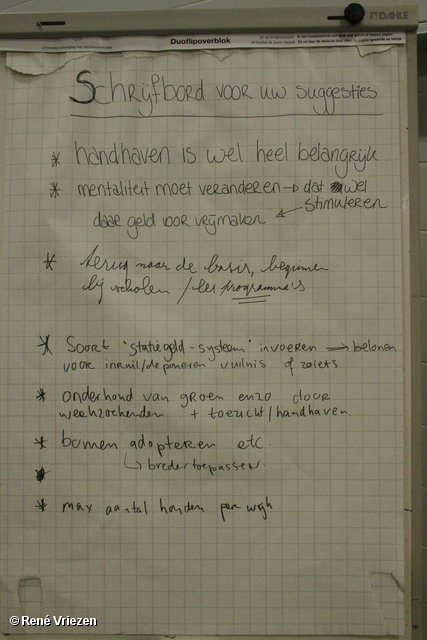 DAHLE
Duoflipoverblok
Schrijfbord voor uw suggesties
* handhaven is wel heel belangrijk
* mentaliteit moet veranderen → dat wel
stimuleren
daar geld voor vrijmaken ←
* terug naar de basis, beginnen
bij scholen / lesprogramma's
* Soort 'statiegeld-systeem' invoeren → belonen
voor inruil/deponeren vuilnis of zoiets
* onderhoud van groen enzo door
werkzoekenden + toezicht/handhaven.
* bomen adopteren etc.
↳ breder toepassen.
*
* max aantal honden per wijk
© René Vriezen